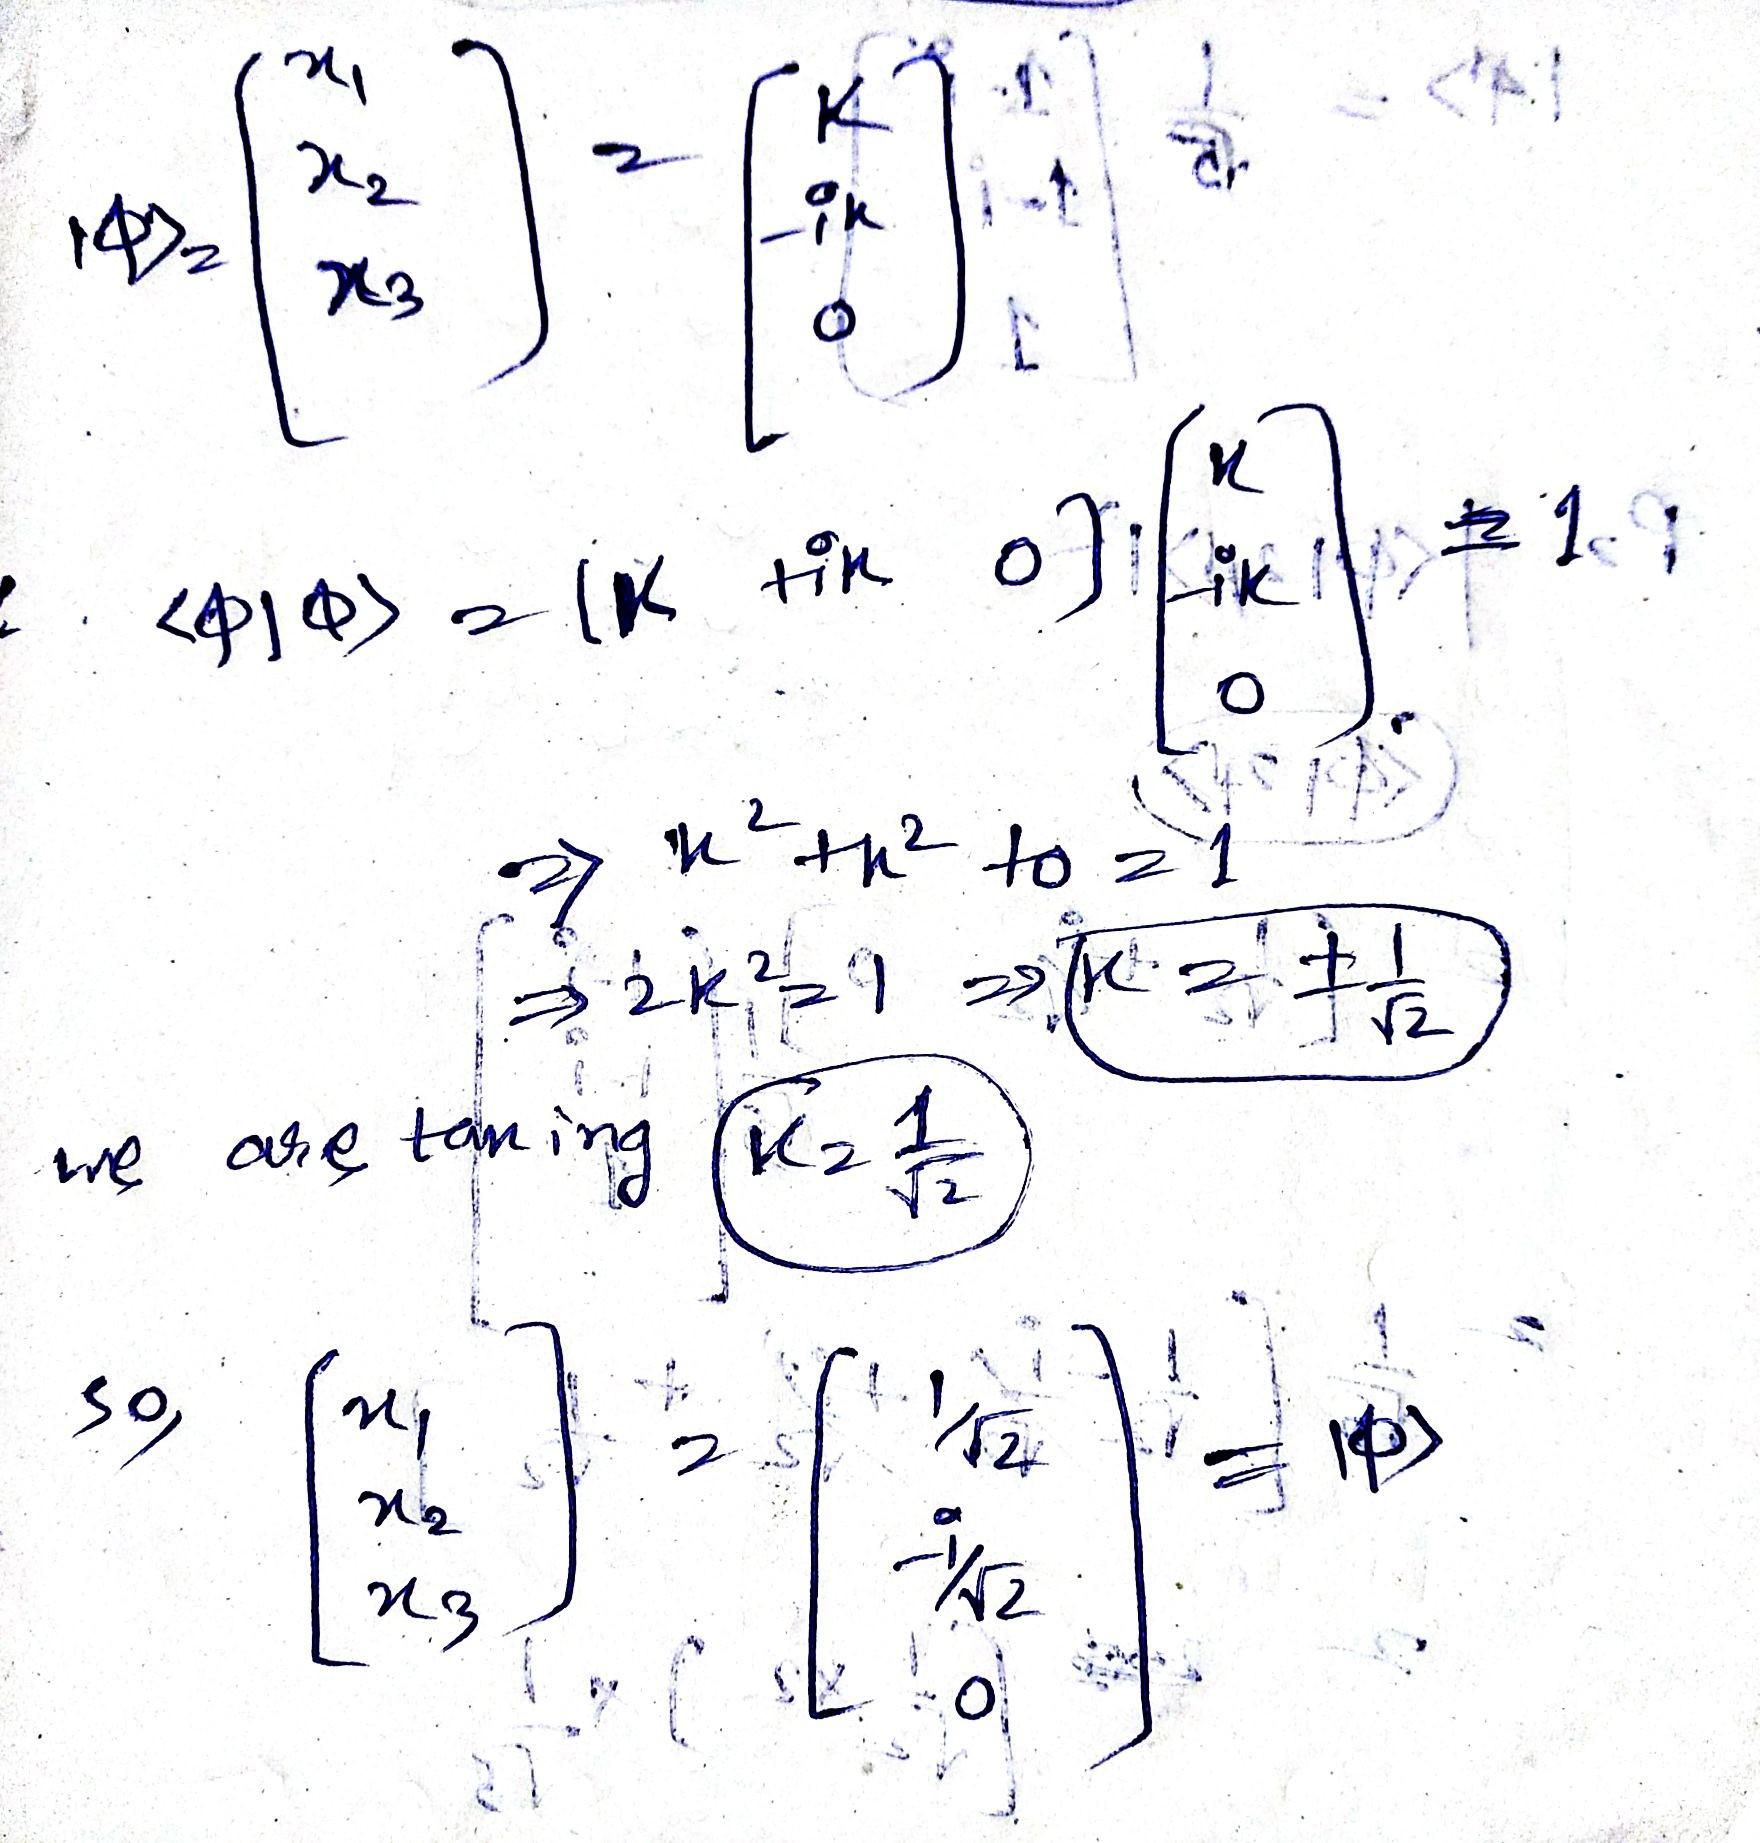 |ϕ⟩ = [x₁ x₂ x₃] = [K -ik 0]
⟨ϕ|ϕ⟩ = [K +ik 0] [k -ik 0] = 1
⇒ k² + k² + 0 = 1
⇒ 2k² = 1 ⇒ k = ± 1/√2
we are taking K = 1/√2
so, [x₁ x₂ x₃] = [1/√2 -i/√2 0] = |ϕ⟩